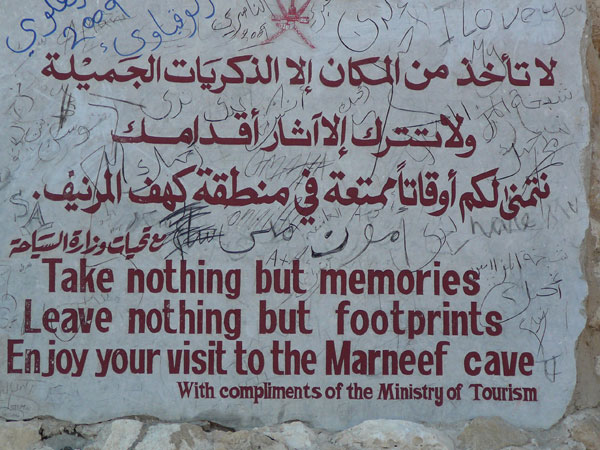 I Love you
2009
لا تأخذ من المكان إلا الذكريات الجميلة
ولا تترك إلا آثار أقدامك
نتمنى لكم أوقاتاً ممتعة في منطقة كهف المرنيف.
مع تحيات وزارة السياحة
Take nothing but memories
Leave nothing but footprints
Enjoy your visit to the Marneef cave
With compliments of the Ministry of Tourism